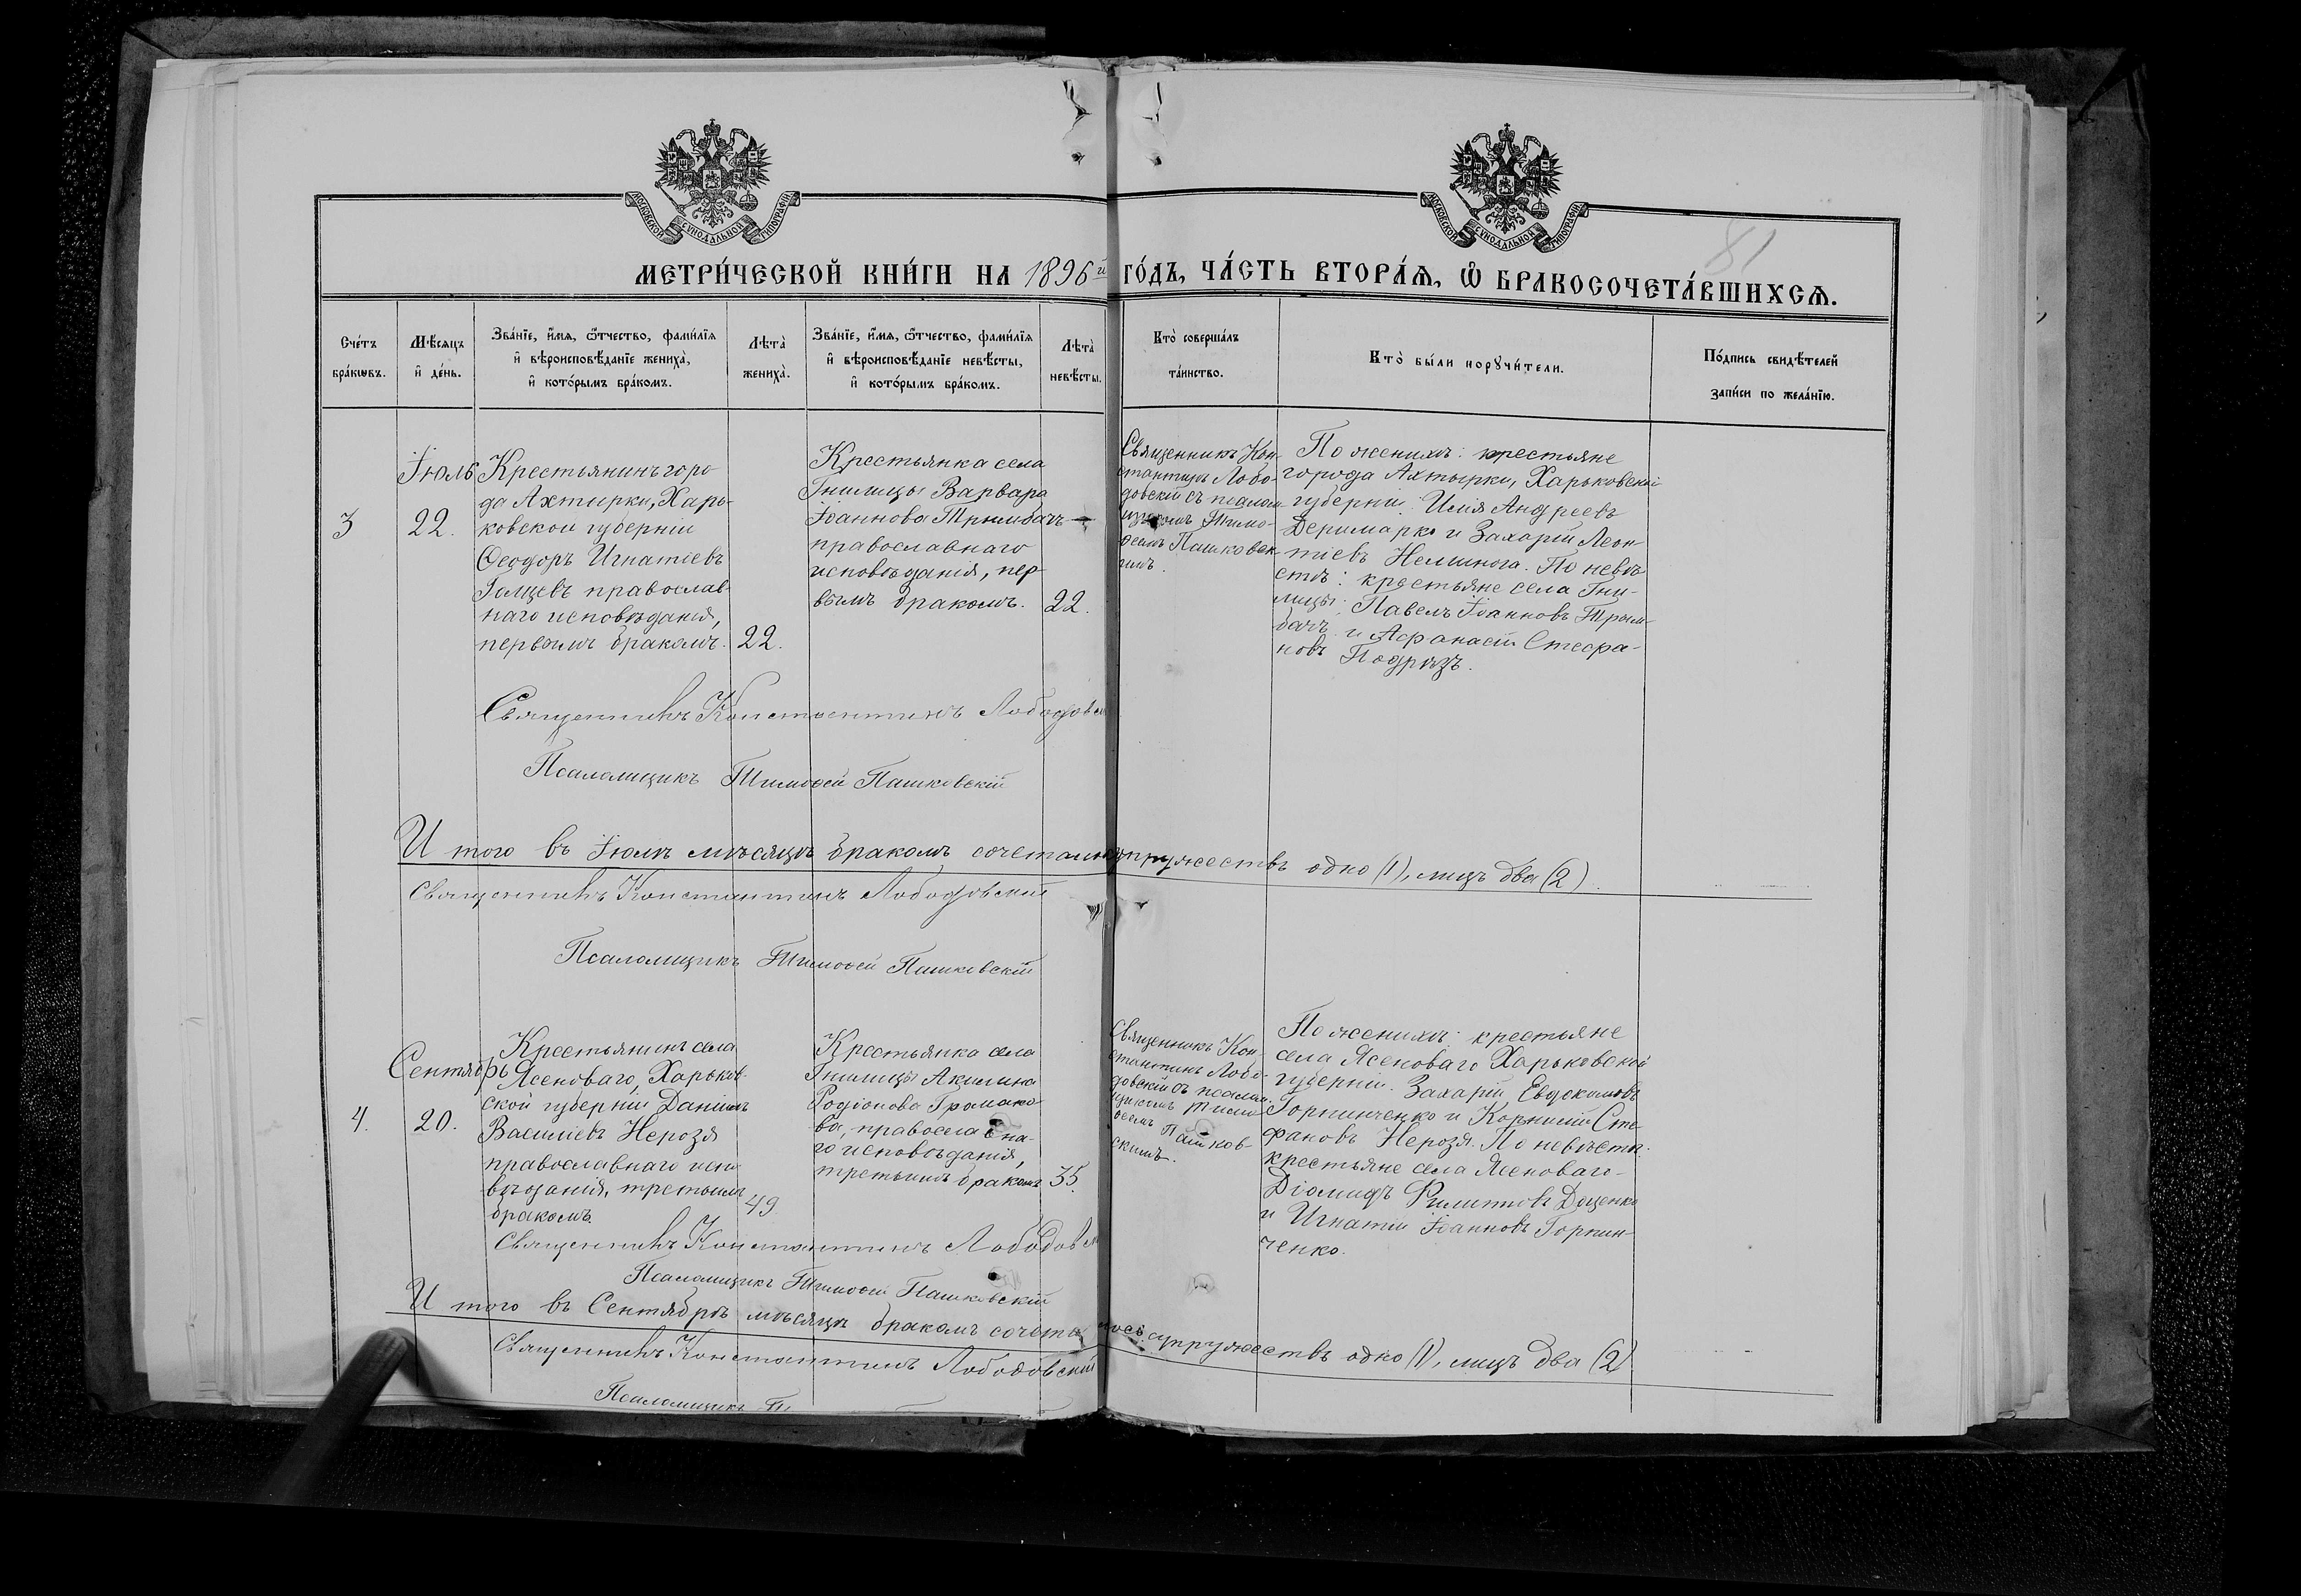 МОСКОВСКОЙ СУНОДАЛЬНОЙ ТИПОГРАФІИ
МОСКОВСКОЙ СУНОДАЛЬНОЙ ТИПОГРАФІИ
81
МЕТРИ́ЧЕСКОЙ КНИ́ГИ НА 1896й ГО́ДЪ, ЧА́СТЬ ВТОРА́Ѧ, Ѽ БРАКОСОЧЕТА́ВШИХСѦ.
Сче́тъ бра́кѡвъ.
Мѣ́сяцъ и҆ де́нь.
Зва́нїе, и҆́мѧ, ѻ҆́тчество, фами́лїѧ и҆ вѣроисповѣ́данїе жениха̀, и҆ кото́рымъ бра́комъ.
Лѣта̀ жениха̀.
Зва́нїе, и҆́мѧ, ѻ҆́тчество, фами́лїѧ и҆ вѣроисповѣ́данїе невѣ́сты, и҆ кото́рымъ бра́комъ.
Лѣта̀ невѣ́сты.
Кто̀ соверша́лъ та́инство.
Кто̀ бы́ли порꙋчи́тели.
По́дпись свидѣ́телей за́писи по жела́нїю.
3
Іюль
22.
Крестьянинъ горо
да Ахтырки, Харь-
ковской губерніи
Ѳеодоръ Игнатіевъ
Голцевъ православ-
наго исповѣданія,
первымъ бракомъ.
22.
Крестьянка села
Гнилицы Варвара
Іоаннова Трымбачъ
православнаго
исповѣданія, пер
вымъ бракомъ.
22.
Священникъ Кон-
стантинъ Лобо-
довскій съ псалом
щикомъ Тимо-
ѳеемъ Пашковск
имъ.
По женихѣ: крестьяне
города Ахтырки, Харьковской
губерніи: Илія Андреевъ
Деримарко и Захарій Леон
тіевъ Немынога. По невѣ
стѣ: крестьяне села Гни-
лицы: Павелъ Іоанновъ Трым-
бачъ и Аѳанасій Стефа-
новъ Подрѣзъ.
Священникъ Константинъ Лободовск
Псаломщикъ Тимоѳей Пашковскій
Итого въ Іюлѣ мѣсяцѣ бракомъ сочеталось супружествъ одно (1), лицъ два (2).
Священникъ Константинъ Лободовскій
Псаломщикъ Тимоѳей Пашковскій
4.
Сентябрь
20.
Крестьянинъ села
Ясеноваго, Харьков-
ской губерніи Даніилъ
Василіевъ Нерозя
православнаго испо
вѣданія, третьимъ
бракомъ.
49
Крестьянка села
Гнилицы Акилина
Родіонова Громако
ва, православна-
го исповѣданія,
третьимъ бракомъ
35.
Священникъ Кон-
стантинъ Лобо-
довскій съ псалом
щикомъ Тимо
ѳеемъ Пашков-
скимъ.
По женихѣ: крестьяне
села Ясеноваго Харьковской
губерніи: Захарій Евдокимовъ
Горпинченко и Корнилій Сте
фановъ Нерозя. По невѣстѣ:
крестьяне села Ясеноваго-
Діомидъ Филипповъ Доценко
и Игнатій Іоанновъ Горпин-
ченко.
Священникъ Константинъ Лободовск
Псаломщикъ Тимоѳей Пашковскій
Итого въ Сентябрѣ мѣсяцѣ бракомъ сочеталось супружествъ одно (1), лицъ два (2)
Священникъ Константинъ Лободовский
Псаломщикъ